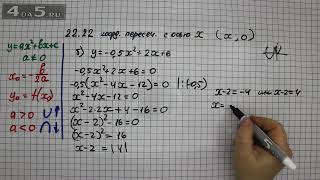 4DA5.RU
22.22 коорд. пересеч. с осью x (x, 0)
y=ax²+bx+c
a≠0
x₀=-b/2a
y₀=f(x₀)
a>0 ∪↑
a<0 ∩↓
8) y=-0,5x²+2x+6
-0,5x²+2x+6=0
-0,5(x²-4x-12)=0 |:(-0,5)
x²-4x-12=0
x²-2·2x+4-16=0
(x-2)²-16=0
(x-2)²=16
x-2=|4|
x-2=-4 или x-2=4
x=